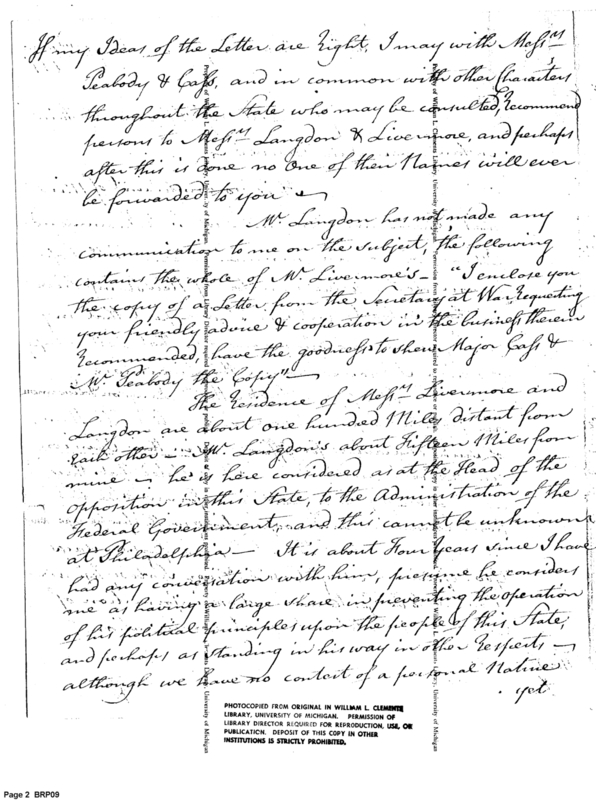 If my Ideas of the Letter are Right, I may with Mess.rs
Peabody & Cass, and in common with other Characters
throughout the State who may be consulted, Recommend
persons to Mess.rs Langdon & Livermore, and perhaps
after this is done no One of their Names will ever
be forwarded to you —
Mr. Langdon has not made any
communication to me on the subject, the following
contains the whole of Mr. Livermore's — "I enclose you
the copy of a Letter from the Secretary at War, Requesting
your friendly advice & cooperation in the business therein
Recommended, have the goodness to shew Major Cass &
Mr. Peabody the Copy" —
The Residence of Mess.rs Livermore and
Langdon are about one hundred Miles distant from
each other — Mr. Langdon's about Fifteen Miles from
mine — he is here considered as at the Head of the
opposition in this State, to the Administration of the
Federal Government, and this cannot be unknown
at Philadelphia — It is about Four Years since I have
had any conversation with him, presume he considers
me as having a large share in preventing the operation
of his political principles upon the people of this State,
and perhaps as standing in his way in other Respects —
although we have no contest of a personal Native
yet
PHOTOCOPIED FROM ORIGINAL IN WILLIAM L. CLEMENTS
LIBRARY, UNIVERSITY OF MICHIGAN. PERMISSION OF
LIBRARY DIRECTOR REQUIRED FOR REPRODUCTION, USE, OR
PUBLICATION. DEPOSIT OF THIS COPY IN OTHER
INSTITUTIONS IS STRICTLY PROHIBITED.
Page 2 BRP09